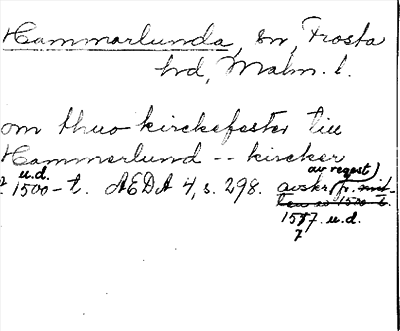 Hammarlunda, sn, Frosta
hd, Malm. l.
om thuo kirckefester till
Hammerlund -- kircker
av regest)
u.d.
1500-t. AEDA 4, s. 298. avskr. (fr. mit-
ten av 1500-t.
1557 u.d.
?